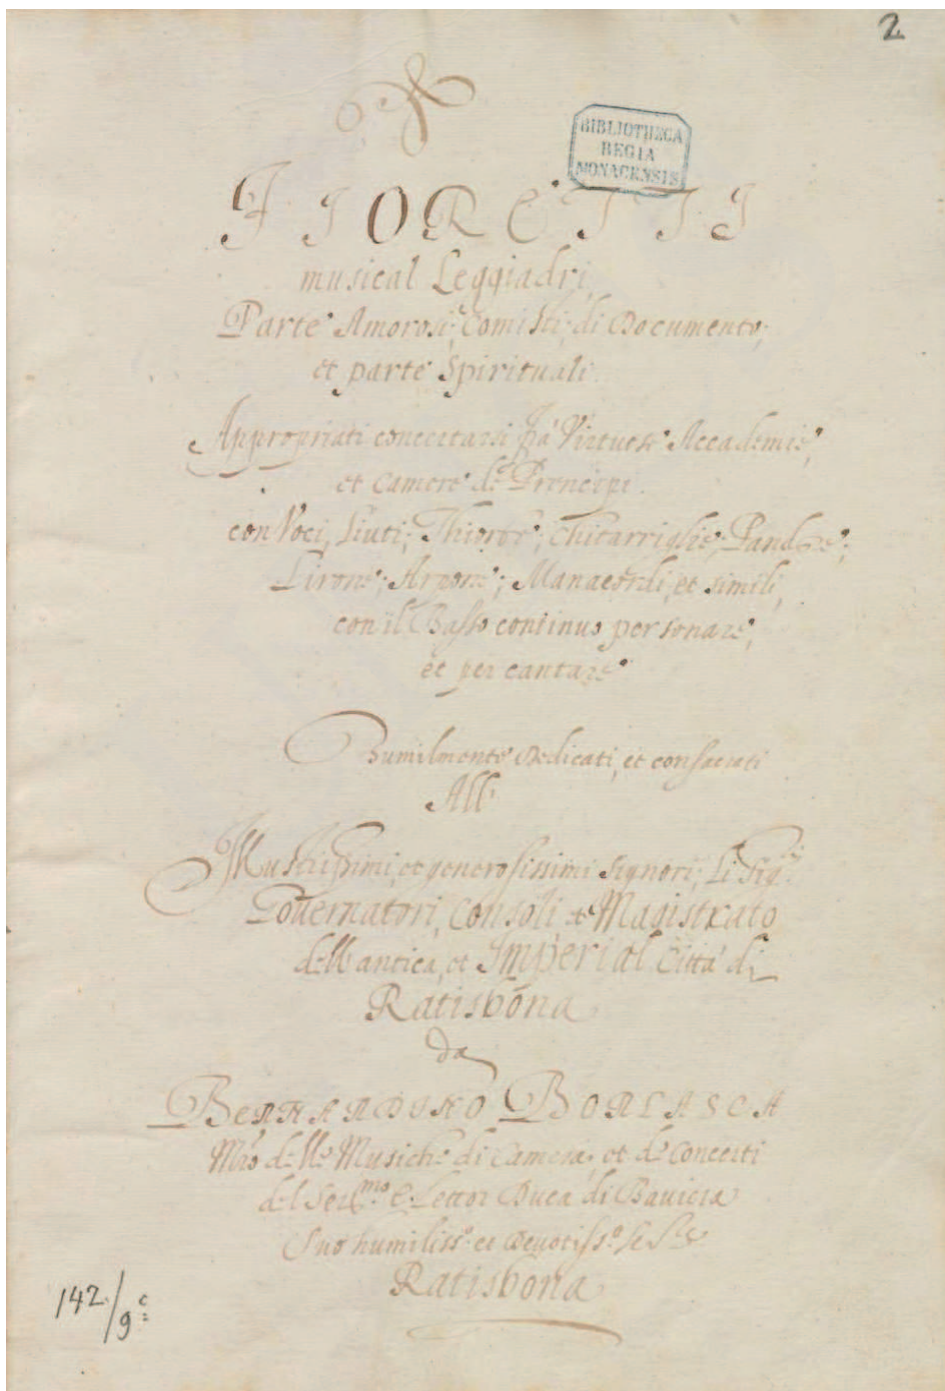 2
BIBLIOTHECA
REGIA
MONACENSIS
FIORETTI
musical Leggiadri,
Parte Amorosi; Comisti; di Documento;
et parte Spirituali.
Appropriati concertarsi frà Virtuose Accademie,
et Camere de Prencipi.
con Voci, Liuti; Thiorbe; Chitarriglie; Pandore;
Lirone; Arpone; Manacordi, et simili,
con il Basso continuo per sonare,
et per cantare
Humilmente Dedicati, et consacrati
All'
Illustrissimi, et generosissimi Signori; Li Sig.ri
Governatori, Consoli et Magistrato
dell'antica, et Imperial Città di
Ratisbona
da
BERNARDINO BORLASCA
Mro delle Musiche di Camera, et de Concerti
del Ser.mo Elettor Duca di Baviera
Suo humiliss.o et Devotiss.o
Ratisbona
142/9c